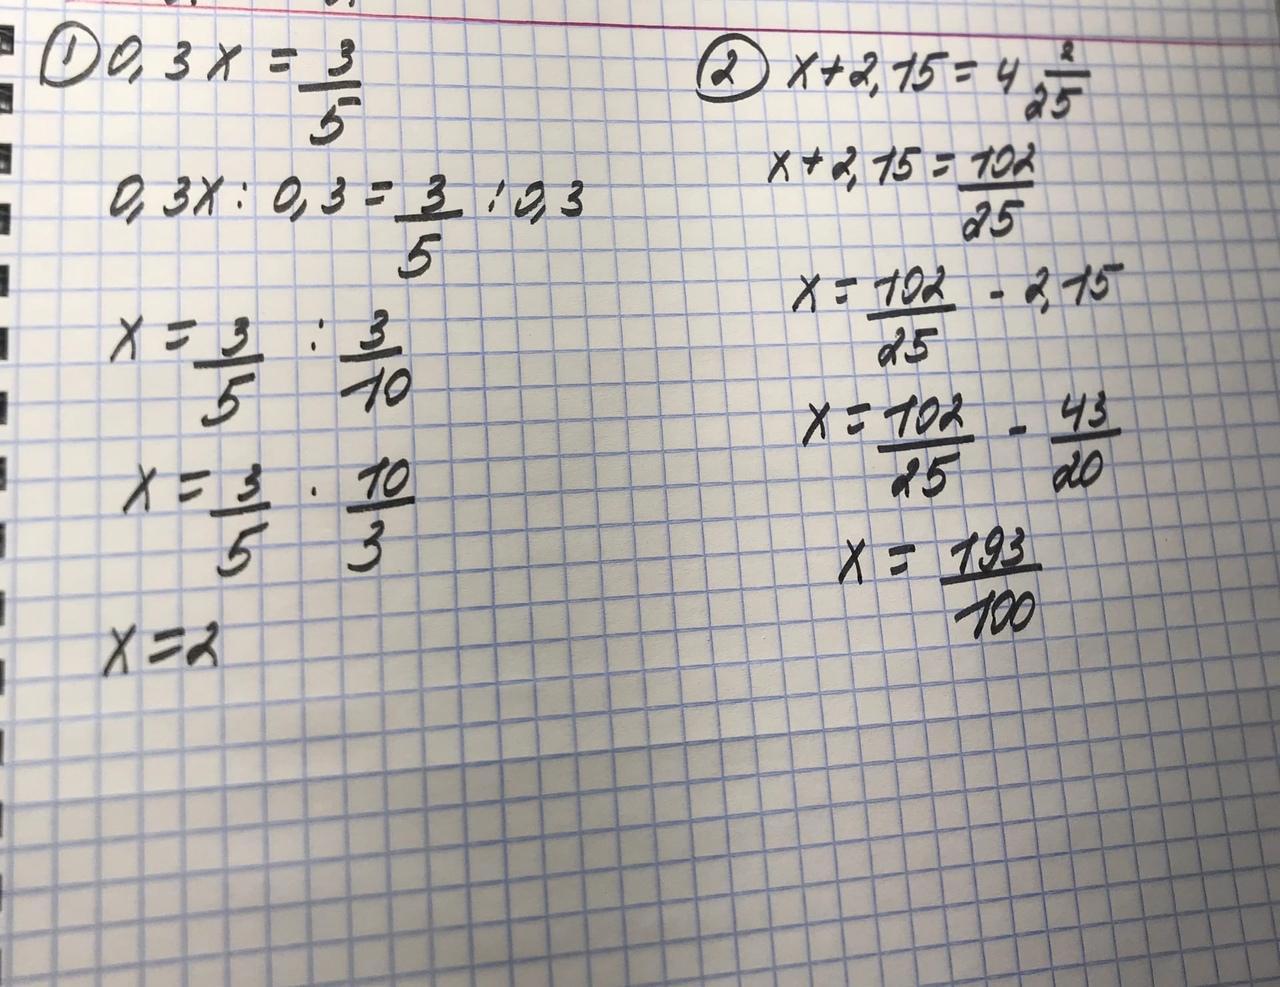 ① 0,3x = 3/5
0,3x : 0,3 = 3/5 : 0,3
x = 3/5 : 3/10
x = 3/5 · 10/3
x = 2
② x + 2,15 = 4 2/25
x + 2,15 = 102/25
x = 102/25 - 2,15
x = 102/25 - 43/20
x = 193/100